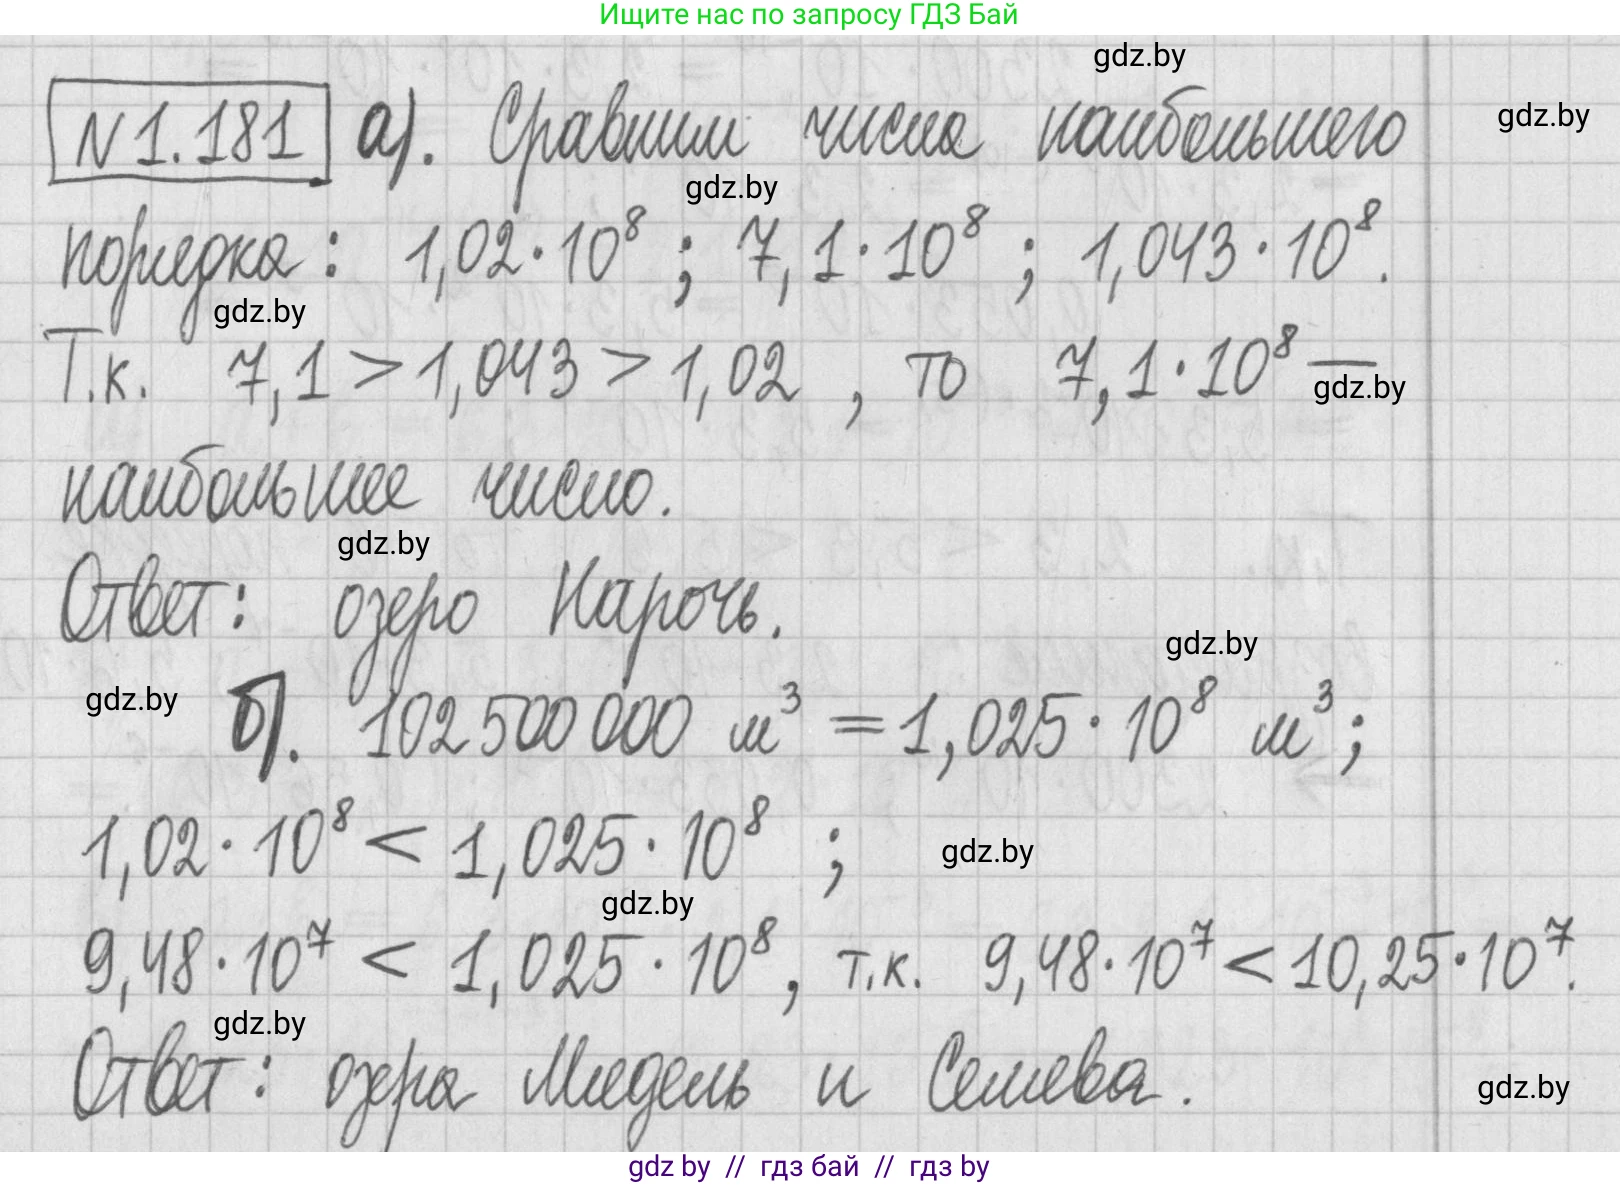 Ищите нас по запросу ГДЗ Бай
gdz.by
N 1.181 а). Сравним числа наибольшего
gdz.by
gdz.by
порядка: 1,02·10⁸ ; 7,1·10⁸ ; 1,043·10⁸.
gdz.by
Т.к. 7,1 > 1,043 > 1,02 , то 7,1·10⁸ —
gdz.by
наибольшее число.
gdz.by
Ответ: озеро Нарочь.
gdz.by
gdz.by
б). 102 500 000 м³ = 1,025·10⁸ м³;
1,02·10⁸ < 1,025·10⁸ ;
gdz.by
gdz.by
9,48·10⁷ < 1,025·10⁸, т.к. 9,48·10⁷ < 10,25·10⁷.
gdz.by
Ответ: озёра Мядель и Селева.
gdz.by
gdz by // гдз бай // гдз by